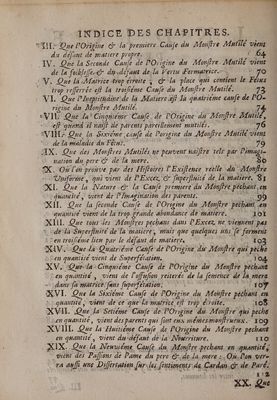 INDICE DES CHAPITRES.
III. Que l'Origine & la premiere Cause du Monstre Mutilé vient
du défaut de matiere propre. 64
IV. Que la Seconde Cause de l'Origine du Monstre Mutilé, vient
de la foiblesse & du défaut de la Vertu Formatrice. 70
V. Que la Matrice trop étroite, & la place qui contient le Fétus
trop resserrée est la troisiéme Cause du Monstre Mutilé. 73
VI. Que l'Inéptitude de la Matiere est la quatriéme cause de l'O-
rigine du Monstre Mutilé. 74
VII. Que la Cinquiéme Cause de l'Origine du Monstre Mutilé,
est quand il naist de parens pareillement mutilés. 76
VIII. Que la Sixiéme Cause de l'Origine du Monstre Mutilé vient
de la maladie du Fétus. 79
IX. Que des Monstres Mutilés ne peuvent naistre tels par l'imagi-
nation du pere & de la mere. 80
X. Où l'on prouve par des Histoires l'Existence réelle du Monstre
Uniforme, qui vient de l'Excez, & superfluité de la matiere. 81
XI. Que la Nature & la Cause premiere du Monstre péchant en
quantité, vient de l'Imagination des parens. 99
XII. Que la seconde Cause de l'Origine du Monstre péchant en
quantité vient de la trop grande abondance de matiere. 101
XIII. Que tous les Monstres péchant dans l'Excez, ne viennent pas
de la Superfluité de la matiere, mais que quelques uns se forment
en troisiéme lieu par le défaut de matiere. 103
XIV. Que la Quatriéme Cause de l'Origine du Monstre qui péche
en quantité vient de Superfétation. 104
XV. Que la Cinquiéme Cause de l'Origine du Monstre péchant
en quantité, vient de l'effusion réiterée de la semence de la mere
dans la matrice sans superfétation. 107
XVI. Que la Sixiéme Cause de l'Origine du Monstre péchant en
quantité, vient de ce que la matrice est trop étroite. 108
XVII. Que la Setiéme Cause de l'Origine du Monstre qui péche
en quantité, vient des parens qui sont eux mêmes monstrueux. 109
XVIII. Que la Huitiéme Cause de l'Origine du Monstre péchant
en quantité, vient du défaut de la Nourriture. 110
XIX. Que la Neuviéme Cause du Monstre péchant en quantité,
vient des Passions de l'ame du pere & de la mere: Où l'on ver-
ra aussi une Dissertation sur les sentiments de Cardan & de Paré.
112
XX. Que